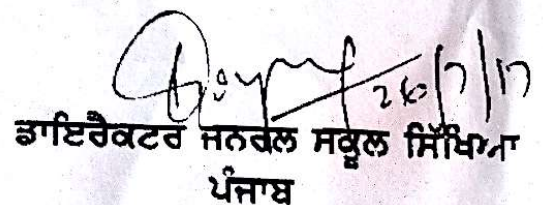 26/7/17
ਡਾਇਰੈਕਟਰ ਜਨਰਲ ਸਕੂਲ ਸਿੱਖਿਆ
ਪੰਜਾਬ